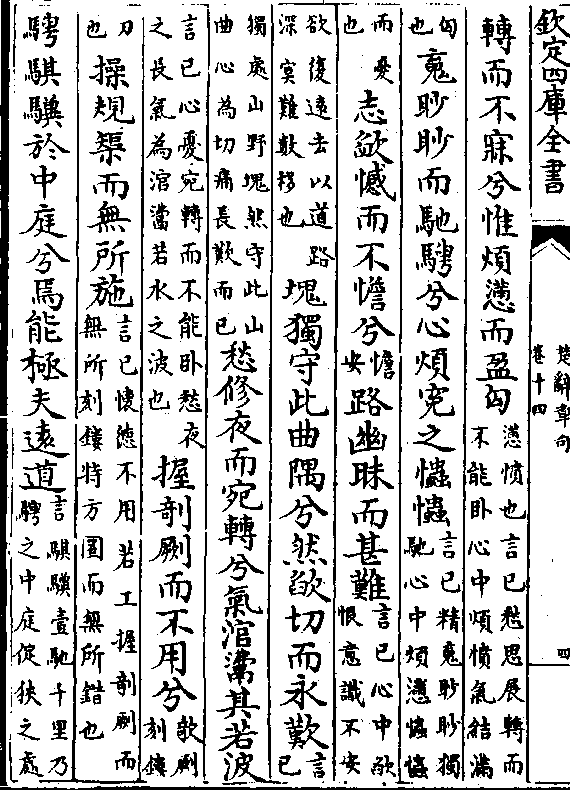 欽定四庫全書
楚辭章句
卷十四
四
轉而不寐兮惟煩懣而盈匈
懣憤也言己愁思展轉而
不能卧心中煩憤氣結滿
匈
也
䰟眇眇而馳騁兮心煩寃之𢥞𢥞
言己精䰟眇眇獨
馳心中煩懣𢥞𢥞
而憂
也
志欿憾而不憺兮
憺
安
路幽昧而甚難
言己心中欿
恨意識不安
欲復遠去以道路
深冥難數移也
塊獨守此曲隅兮然欿切而永歎
言
己
獨處山野塊然守此山
曲心為切痛長歎而已
愁修夜而宛轉兮氣涫㵒其若波
言己心憂宛轉而不能卧愁夜
之長氣為涫㵒若水之波也
握剞劂而不用兮
剞劂
刻鏤
刀
也
操規榘而無所施
言己懷德不用若工握剞劂而
無所刻鏤持方圓而無所錯也
騁騏驥於中庭兮焉能極夫遠道
言騏驥壹馳千里乃
騁之中庭促狹之處